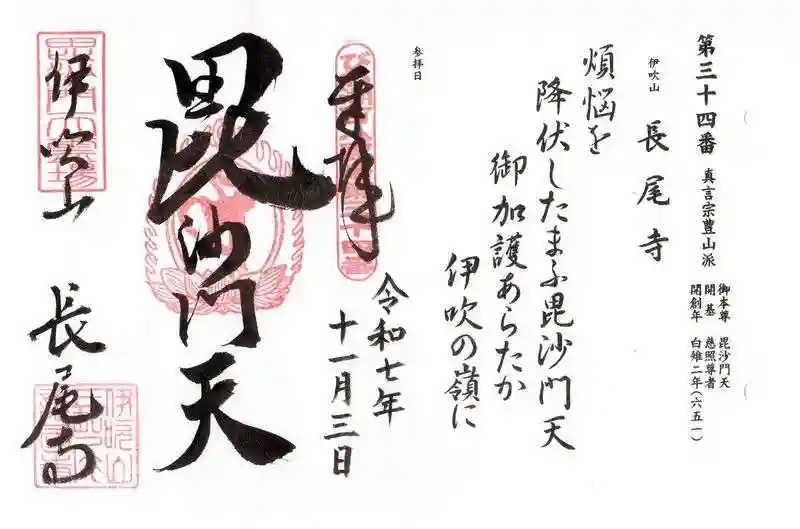 第三十四番 真言宗豊山派
御本尊 毘沙門天
開基 慈照尊者
開創年 白雉二年(六五一)
伊吹山 長尾寺
煩悩を
降伏したまふ毘沙門天
御加護あらたか
伊吹の嶺に
参拝日
奉拝
令和七年
十一月三日
毘沙門天
伊吹山
長尾寺